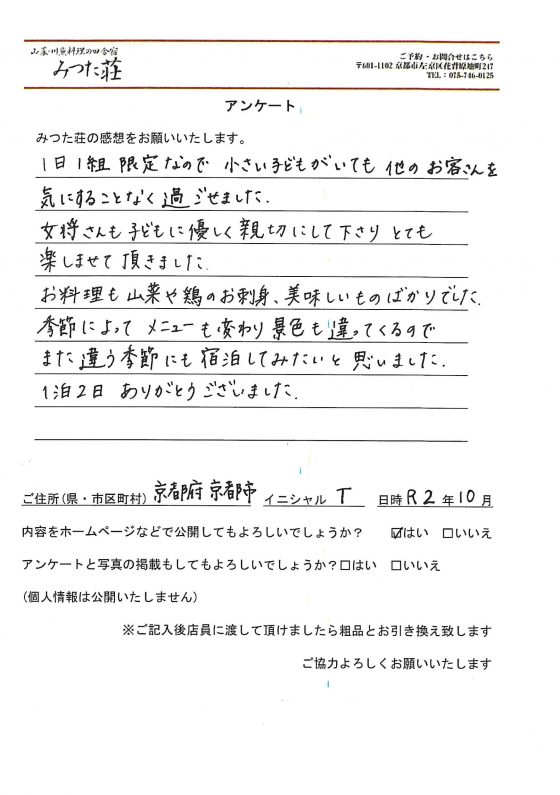 山菜・川魚料理の四合宿
みつた荘
ご予約・お問合せはこちら
〒601-1102 京都市左京区花背原地町247
TEL: 075-746-0125
アンケート
みつた荘の感想をお願いいたします。
1日1組 限定なので 小さい子どもがいても 他のお客さんを
気にすることなく過ごせました.
女将さんも子どもに優しく親切にして下さり とても
楽しませて頂きました.
お料理も山菜や鶏のお刺身、美味しいものばかりでした.
季節によって メニューも変わり景色も違ってくるので
また違う季節にも宿泊してみたいと思いました.
1泊2日 ありがとうございました.
ご住所(県・市区町村) 京都府京都市 イニシャル T 日時 R2年10月
内容をホームページなどで公開してもよろしいでしょうか? ☑はい □いいえ
アンケートと写真の掲載もしてもよろしいでしょうか?□はい □いいえ
(個人情報は公開いたしません)
※ご記入後店員に渡して頂けましたら粗品とお引き換え致します
ご協力よろしくお願いいたします